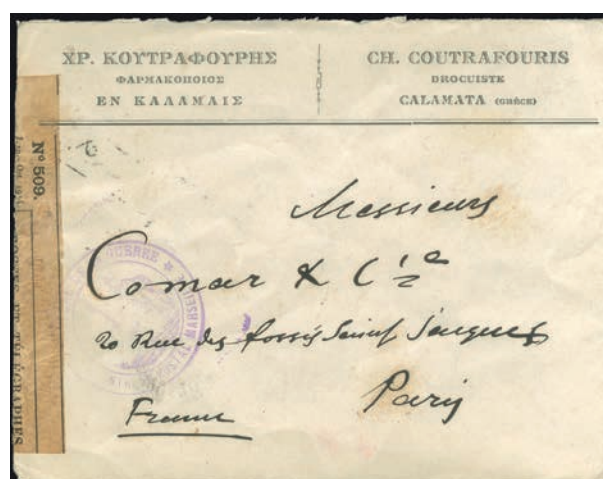 ΧΡ. ΚΟΥΤΡΑΦΟΥΡΗΣ
ΦΑΡΜΑΚΟΠΟΙΟΣ
ΕΝ ΚΑΛΑΜΑΙΣ
CH. COUTRAFOURIS
DROGUISTE
CALAMATA (GRÈCE)
Nº 509.
POSTES ET TÉLÉGRAPHES
GUERRE
POSTAL MARSEILLE
Messieurs
Comar & Cie
20 Rue des fossés Saint Jacques
Paris
France